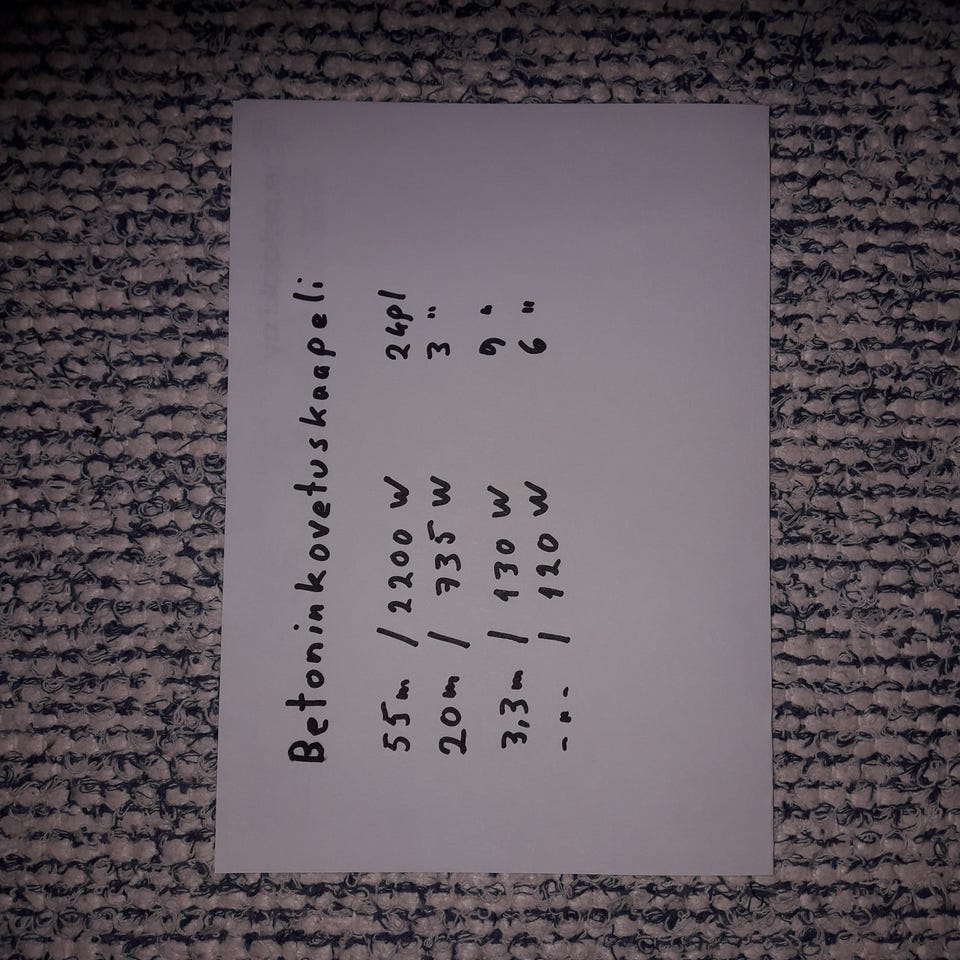 Betoninkovetuskaapeli
55m / 2200 W 24pl
20m / 735 W 3 "
3,3m / 130 W 9 "
- " - / 120 W 6 "